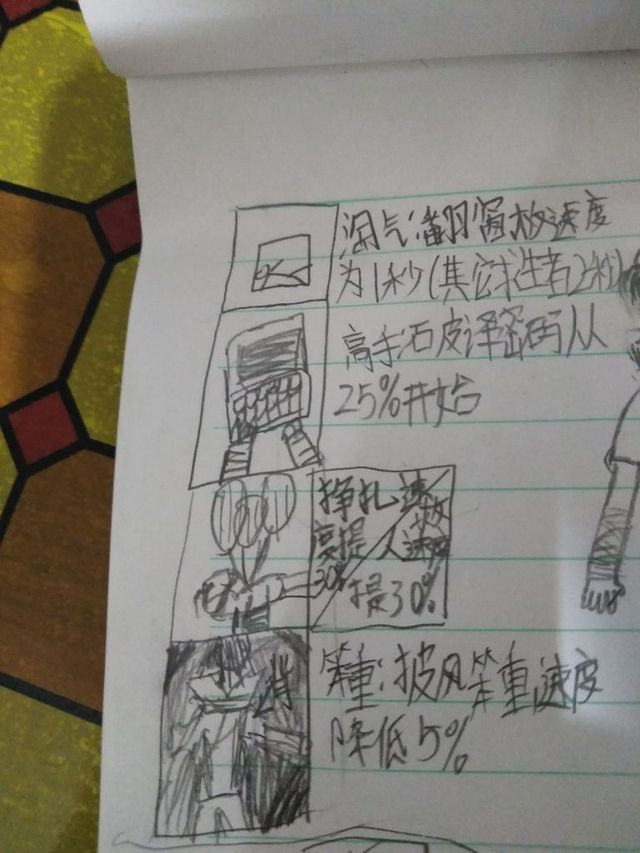 淘气:翻窗放速度
为1秒(其它求生者2秒)
高手:破译密码从
25%开始
挣扎速
高提
30%
放
人速度
提30%
笨重:披风笨重速度
降低5%